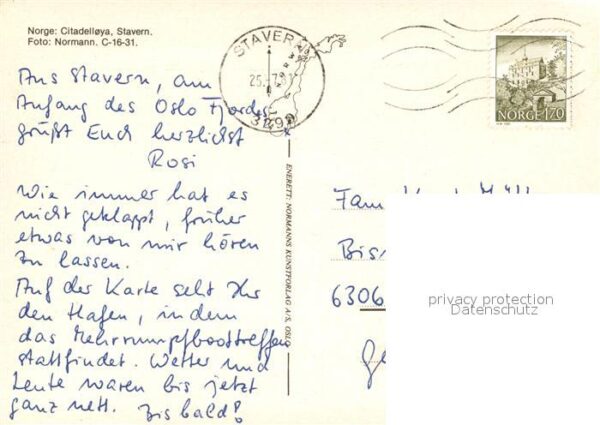 Norge: Citadelløya, Stavern.
Foto: Normann. C-16-31.
STAVERN
25.-7.8
3290
NORGE 170
Aus Stavern, am
Anfang des Oslo Fjordes
grüßt Euch herzlichst
Rosi
Wie immer hat es
nicht geklappt, früher
etwas von mir hören
zu lassen.
Auf der Karte seht Ihr
den Hafen, in dem
das Mehrrumpfboottreffen
stattfindet. Wetter und
Leute waren bis jetzt
ganz nett. Bis bald!
ENERETT: NORMANNS KUNSTFORLAG A/S, OSLO
Fam
Bis
6306
privacy protection
Datenschutz